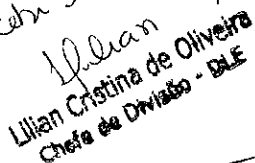 Lilian
Lilian Cristina de Oliveira
Chefe de Divisão - DLE